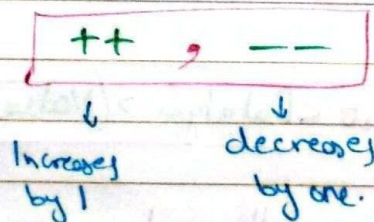 ++ , --
Increases
by 1
decreases
by one.